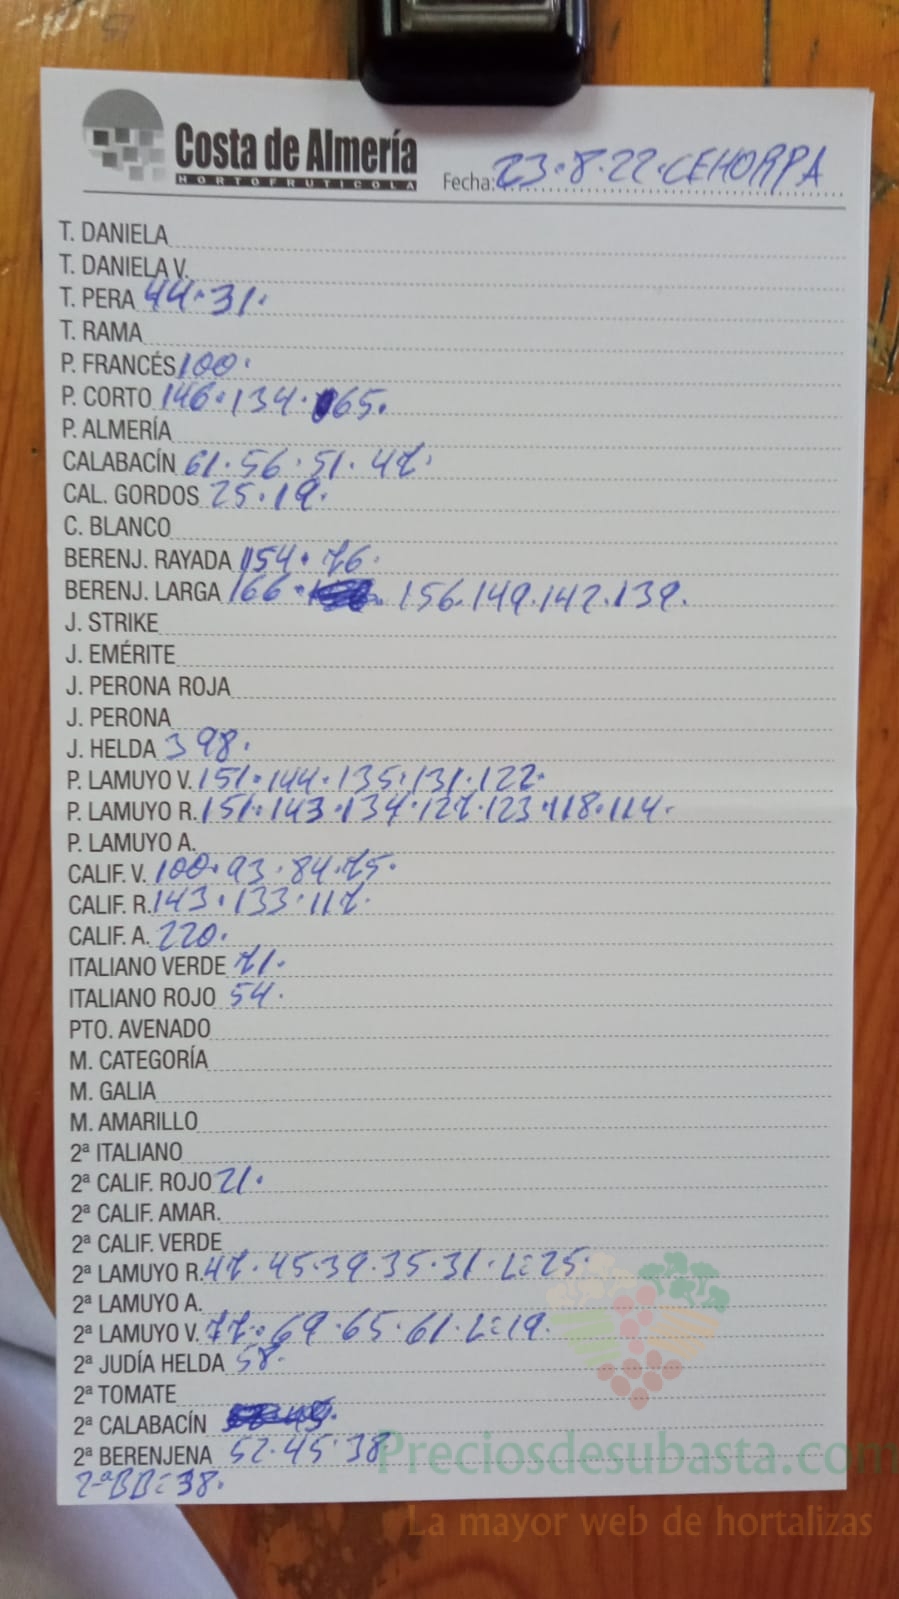 Costa de Almería
HORTOFRUTICOLA
Fecha: 23.8.22.CEHORPA
T. DANIELA
T. DANIELA V.
T. PERA 44.31.
T. RAMA
P. FRANCÉS 100.
P. CORTO 146.134.65.
P. ALMERÍA
CALABACÍN 61.56.51.47.
CAL. GORDOS 25.19.
C. BLANCO
BERENJ. RAYADA 154.76.
BERENJ. LARGA 166. 156.149.142.139.
J. STRIKE
J. EMÉRITE
J. PERONA ROJA
J. PERONA
J. HELDA 398.
P. LAMUYO V. 151.144.135.131.122.
P. LAMUYO R. 151.143.134.127.123.118.114.
P. LAMUYO A.
CALIF. V. 100.93.84.75.
CALIF. R. 143.133.117.
CALIF. A. 220.
ITALIANO VERDE 71.
ITALIANO ROJO 54.
PTO. AVENADO
M. CATEGORÍA
M. GALIA
M. AMARILLO
2ª ITALIANO
2ª CALIF. ROJO 21.
2ª CALIF. AMAR.
2ª CALIF. VERDE
2ª LAMUYO R. 47.45.39.35.31.L=25.
2ª LAMUYO A.
2ª LAMUYO V. 77.69.65.61.L=19.
2ª JUDÍA HELDA 58.
2ª TOMATE
2ª CALABACÍN
2ª BERENJENA 52.45.38
2ªBB=38.
Preciosdesubasta.com
La mayor web de hortalizas